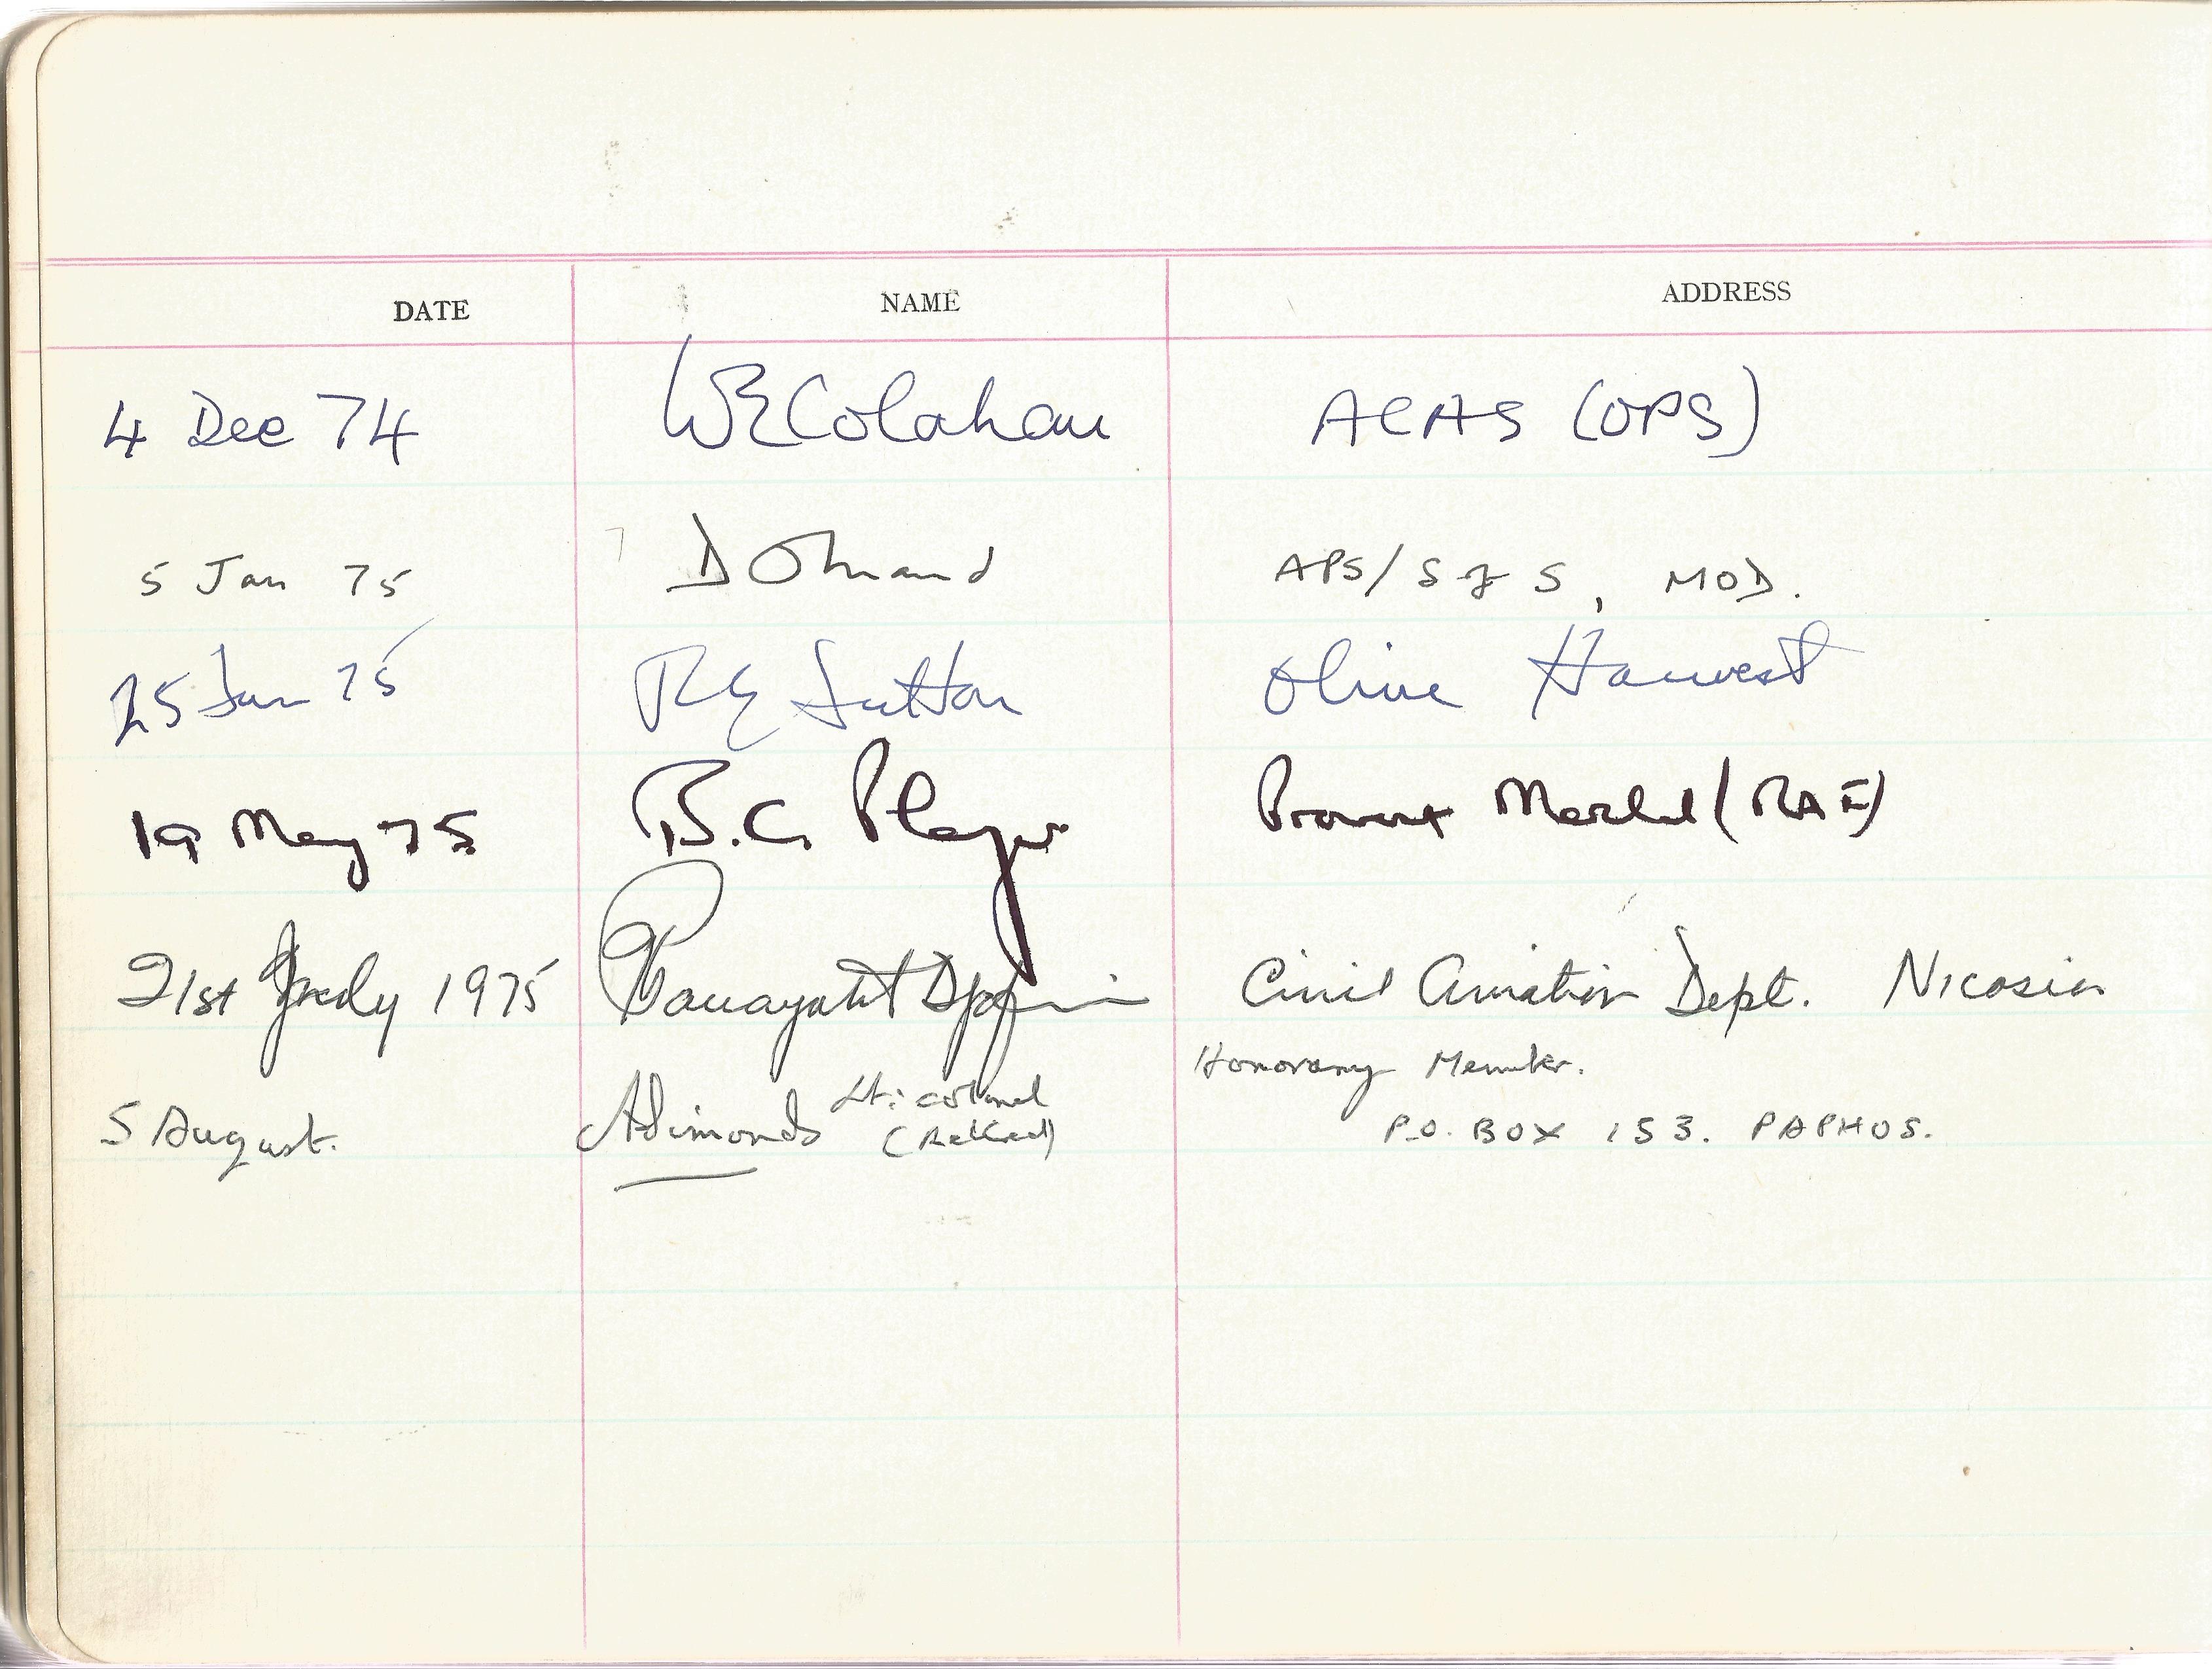 DATE NAME ADDRESS
4 Dec 74 WEColahan ACAS (OPS)
5 Jan 75 D Omand APS/S of S, MOD.
25 Jan 75 RE Sutton Olive Harvest
19 May 75 B.C. Player Provost Marshal (RAF)
21st July 1975 Civil Aviation Dept. Nicosia
Honorary Member.
5 August. Lt: colonel (Retired) P.O. BOX 153. PAPHOS.